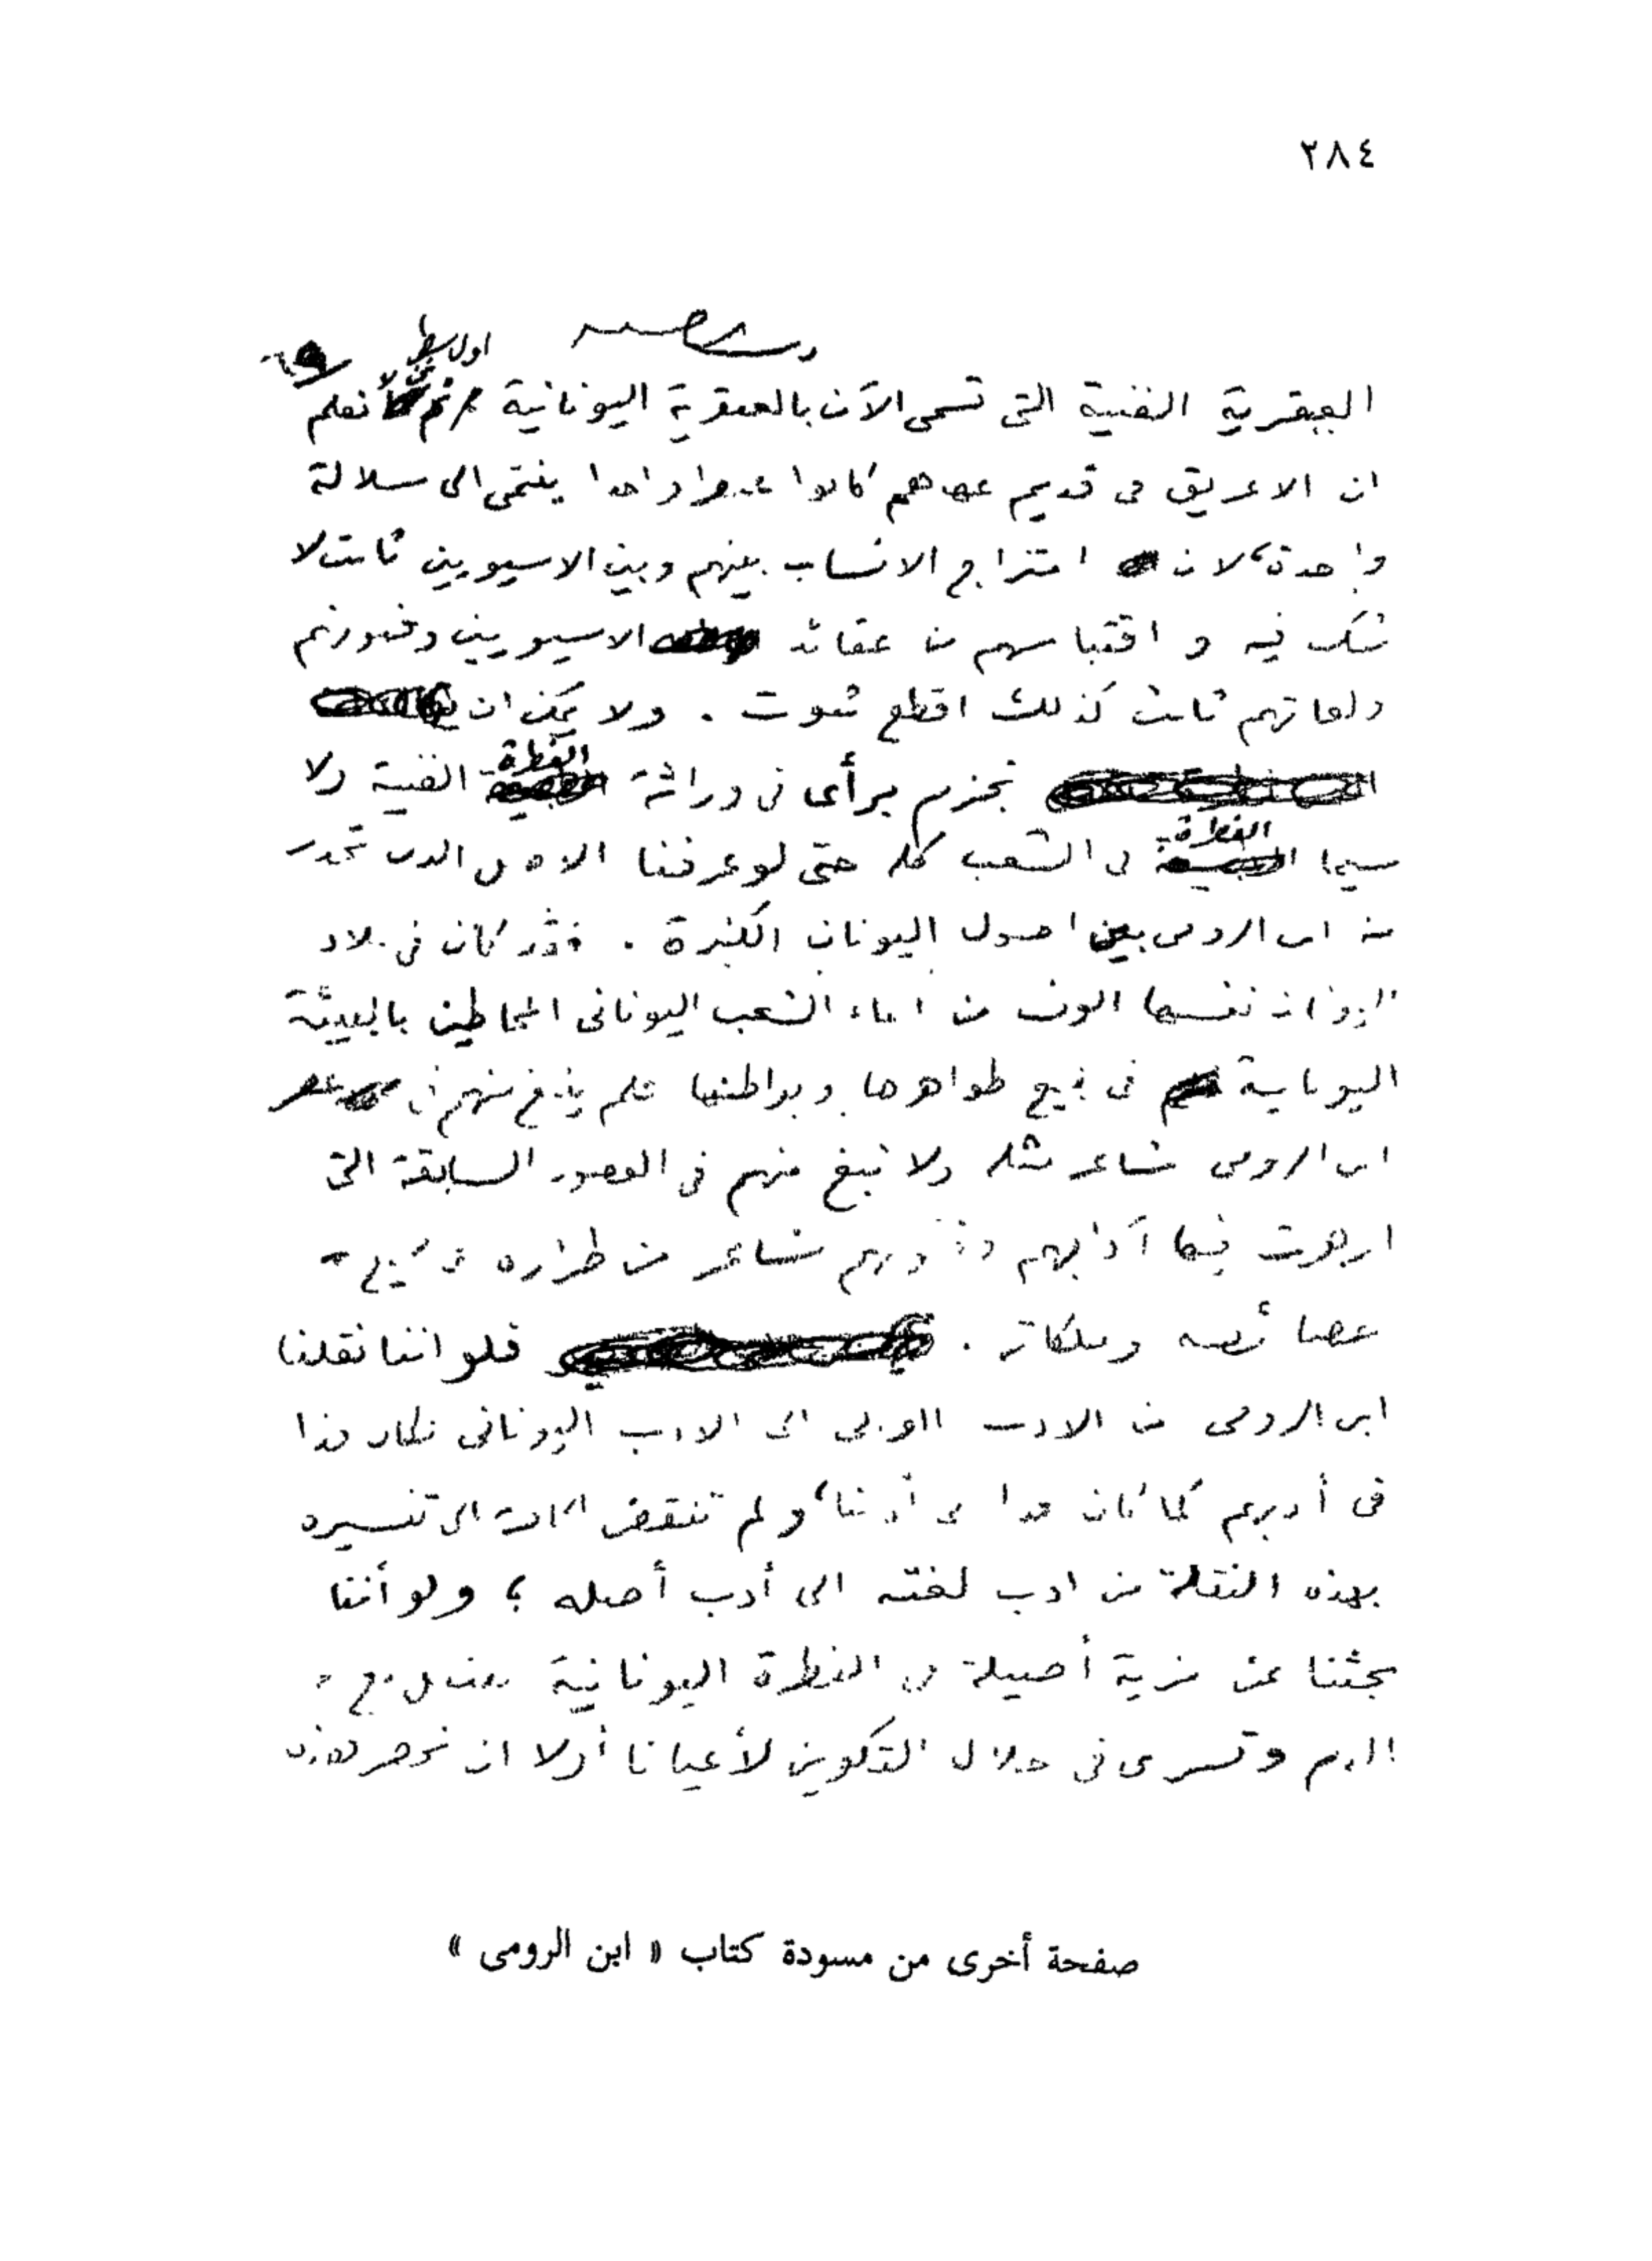 ٢٨٤
اول سطر
العبقرية الفنية التى تسمى الآن بالعبقرية اليونانية ثم لا نعلم
ان الاغريق فى قديم عهدهم كانوا عنصرا واحدا ينتمى الى سلالة
واحدة، لان امتزاج الانساب بينهم وبين الاسيويين ثابت لا
شك فيه و اقتباسهم من عقائد الاسيويين وفنونهم
ولغاتهم ثابت كذلك اقطع ثبوت . ولا يمكن ان
نجزم برأى فى وراثة الفطرة الفنية ولا
سيما الفطرة فى الشعب كله حتى لو عرفنا الاصل الذى تحدر
منه ابن الرومى بين اصول اليونان الكثيرة . فقد كان فى بلاد
اليونان نفسها الوف من ابناء الشعب اليونانى المحاطين بالبيئة
اليونانية فى جميع ظواهرها وبواطنها فلم ينبغ منهم فى عصر
ابن الرومى شاعر مثله ولا نبغ منهم فى العصور السابقة التى
ازهرت فيها آدابهم وفنونهم شاعر من طرازه فى جميع
خصائصه وملكاته . فلو اننا نقلنا
ابن الرومى من الادب العربى الى الادب اليونانى لكان فذا
فى أدبهم كما كان فذا فى أدبنا، ولم تنقض الحاجة الى تفسيره
بهذه النقلة من ادب لغته الى أدب أصله ؛ ولو أننا
بحثنا عن مزية أصيلة فى الفطرة اليونانية مع
الدم وتسرى فى خلال التكوين لأعيانا أولا ان نحصر هذه
صفحة أخرى من مسودة كتاب « ابن الرومى »